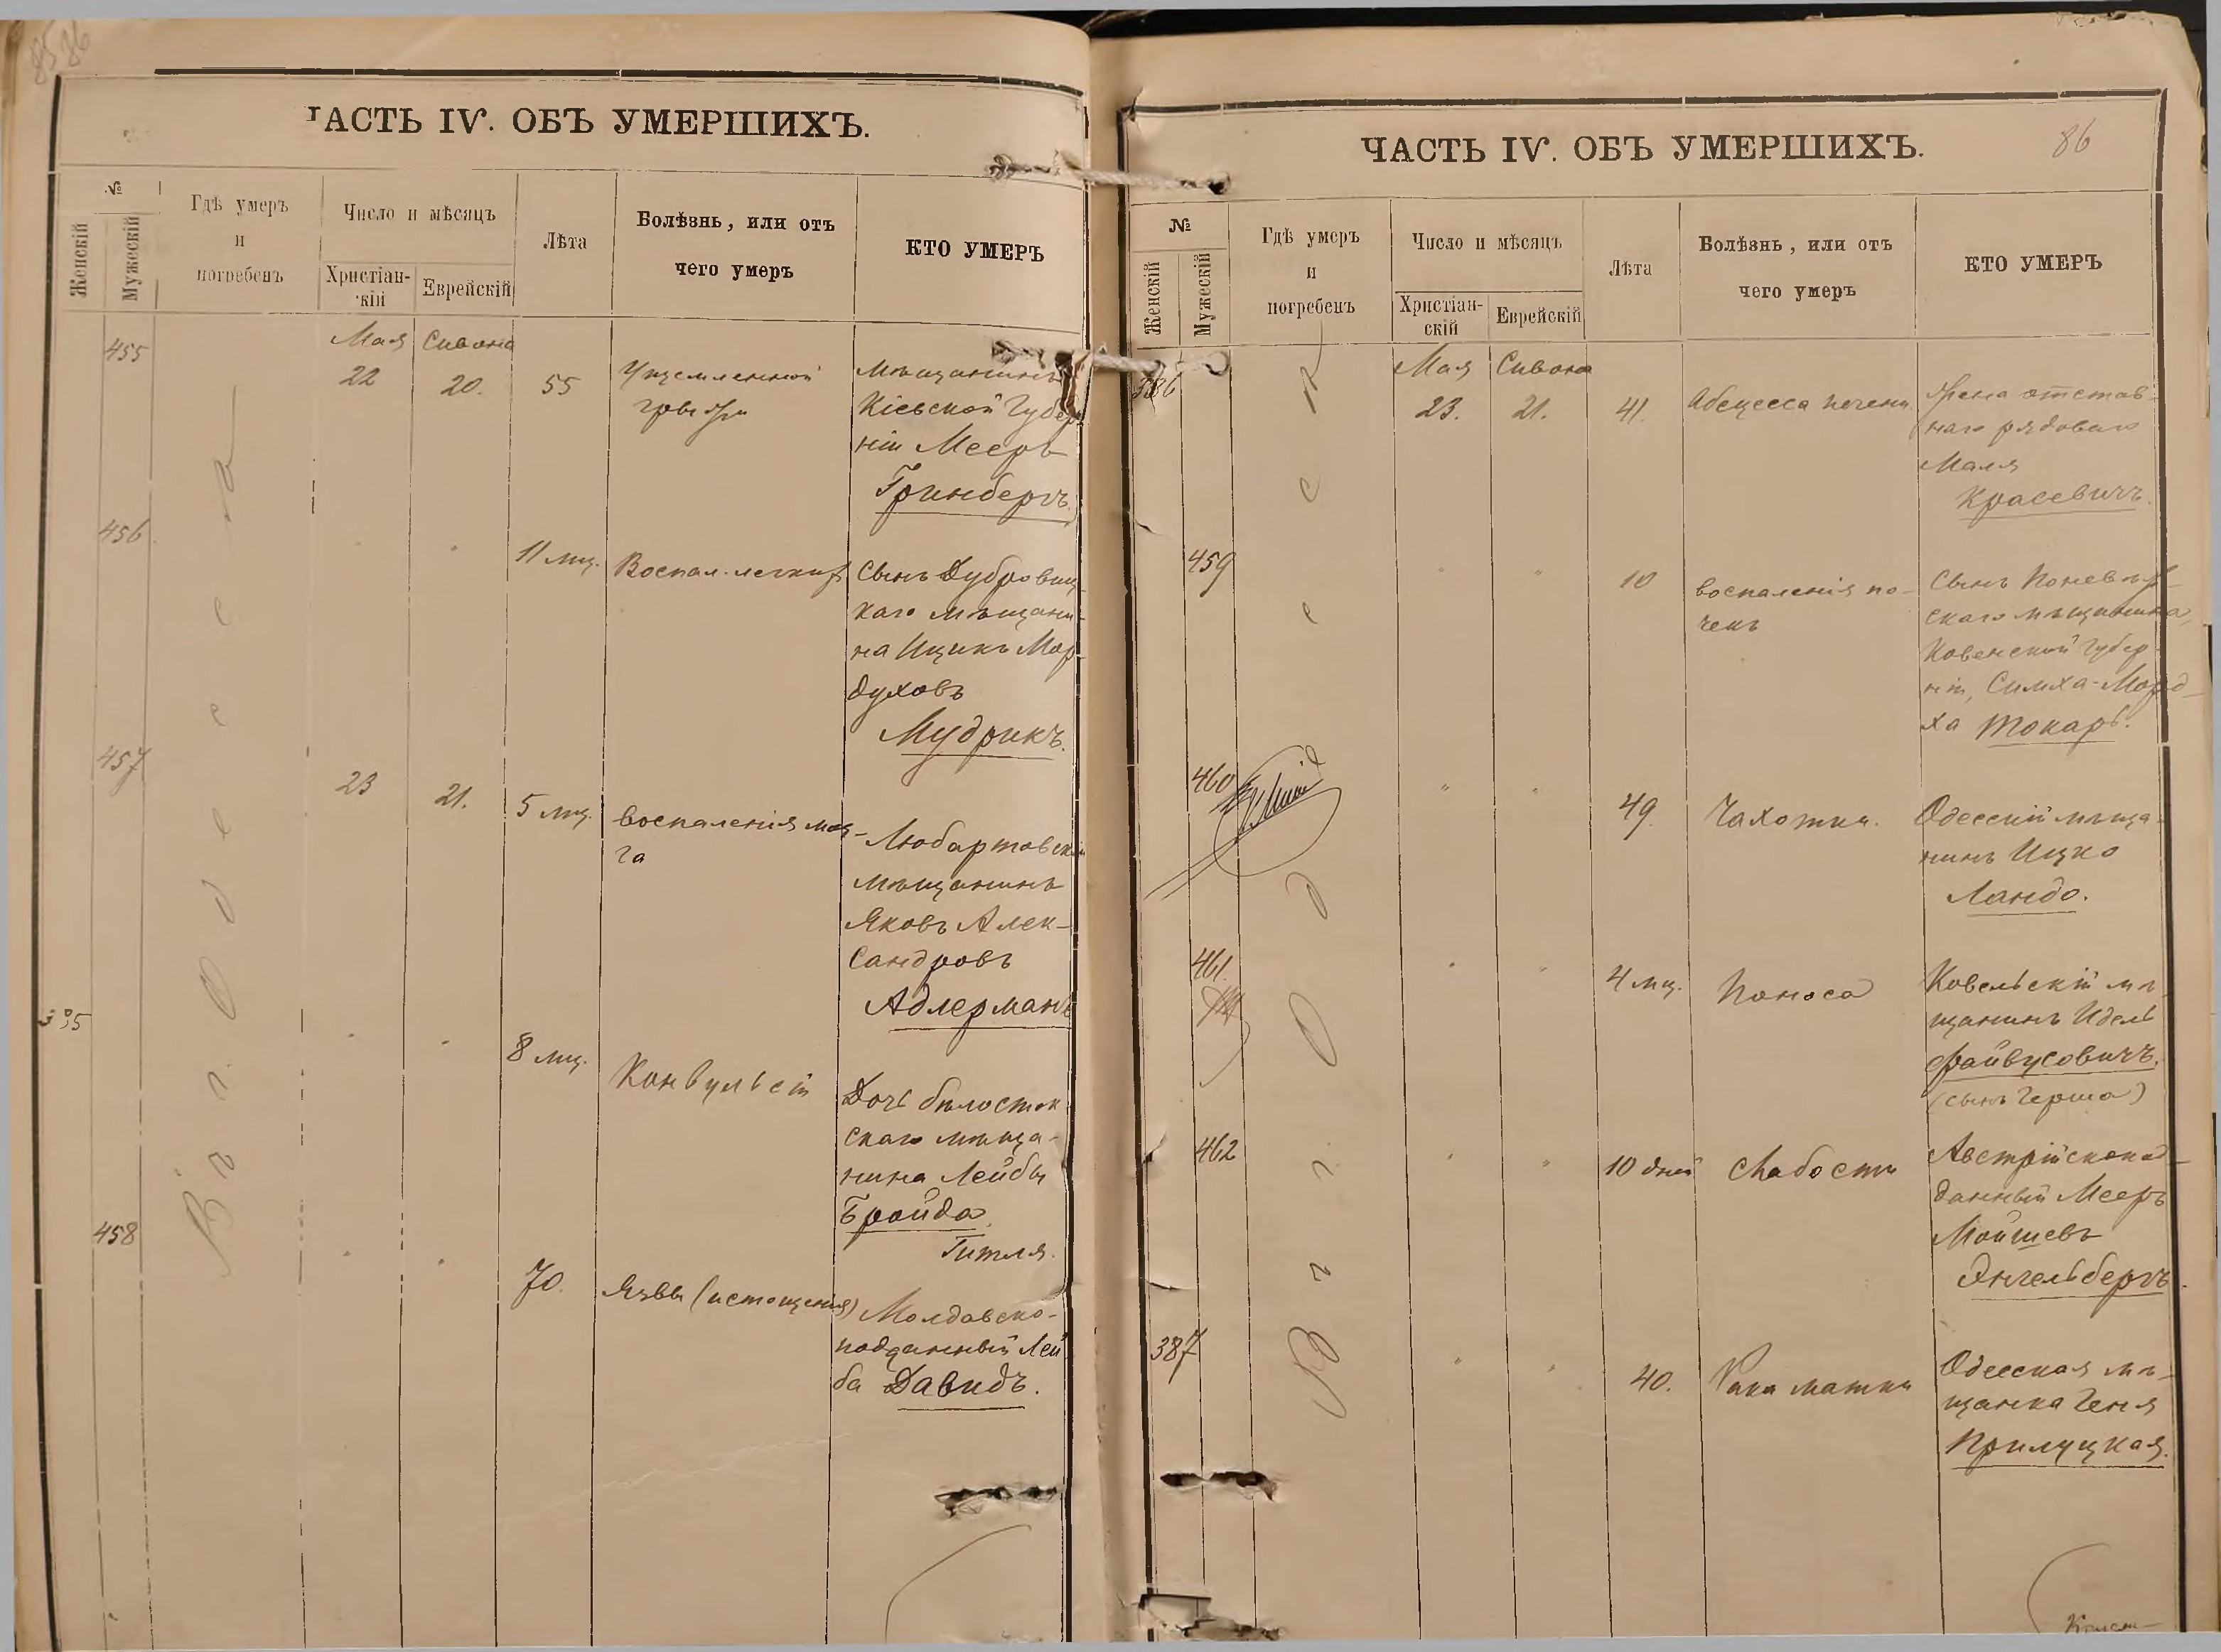 ЧАСТЬ IV. ОБЪ УМЕРШИХЪ.
№
Женскій
Мужескій
Гдѣ умеръ
и
погребенъ
Число и мѣсяцъ
Христіан-
скій
Еврейскій
Лѣта
Болѣзнь, или отъ
чего умеръ
КТО УМЕРЪ
В г. Одессѣ
455
Мая Сивона
22 20. 55
Ущемленной
грыжи
мѣщанинъ
Кіевской Губер
ніи Мееръ
Гринбергъ.
456
11 мц. Воспал. легкихъ
Сынъ Дубровиц-
каго мѣщани-
на Ицикъ Мор-
духовъ
Мудрикъ.
457
23 21. 5 мц.
воспаленія моз-
га
Любартовскій
мѣщанинъ
Яковъ Алек-
сандровъ
Адлерманъ
385
8 мц. Конвульсій
Дочь бѣлосток
скаго мѣща-
нина Лейбы
Бройда.
Гитля.
458
70. Язвы (истощенія)
Молдавско-
подданный Лей
ба Давидъ.
ЧАСТЬ IV. ОБЪ УМЕРШИХЪ.
86
№
Женскій
Мужескій
Гдѣ умеръ
и
погребенъ
Число и мѣсяцъ
Христіан-
скій
Еврейскій
Лѣта
Болѣзнь, или отъ
чего умеръ
КТО УМЕРЪ
В г. Одесс
386
Мая Сивона
23. 21. 41. Абсцесса печени
Жена отстав-
наго рядоваго
Маля
Красевичъ.
459
10 воспаленія по-
чекъ
Сынъ Поневѣж-
скаго мѣщанина,
Ковенской Губер-
ніи, Симха-Морд-
ха Токарь.
460
49. Чахотки.
Одесскій мѣща-
нинъ Ицко
Ландо.
461.
4 мц. Поноса
Ковельскій мѣ-
щанинъ Идель
Файвусовичъ.
(сынъ Герша)
462
10 дней Слабости
Австрійскопод-
данный Мееръ
Мойшевъ
Энгельбергъ.
387
40. Рака матки
Одесская мѣ-
щанка Геня
Прилуцкая.